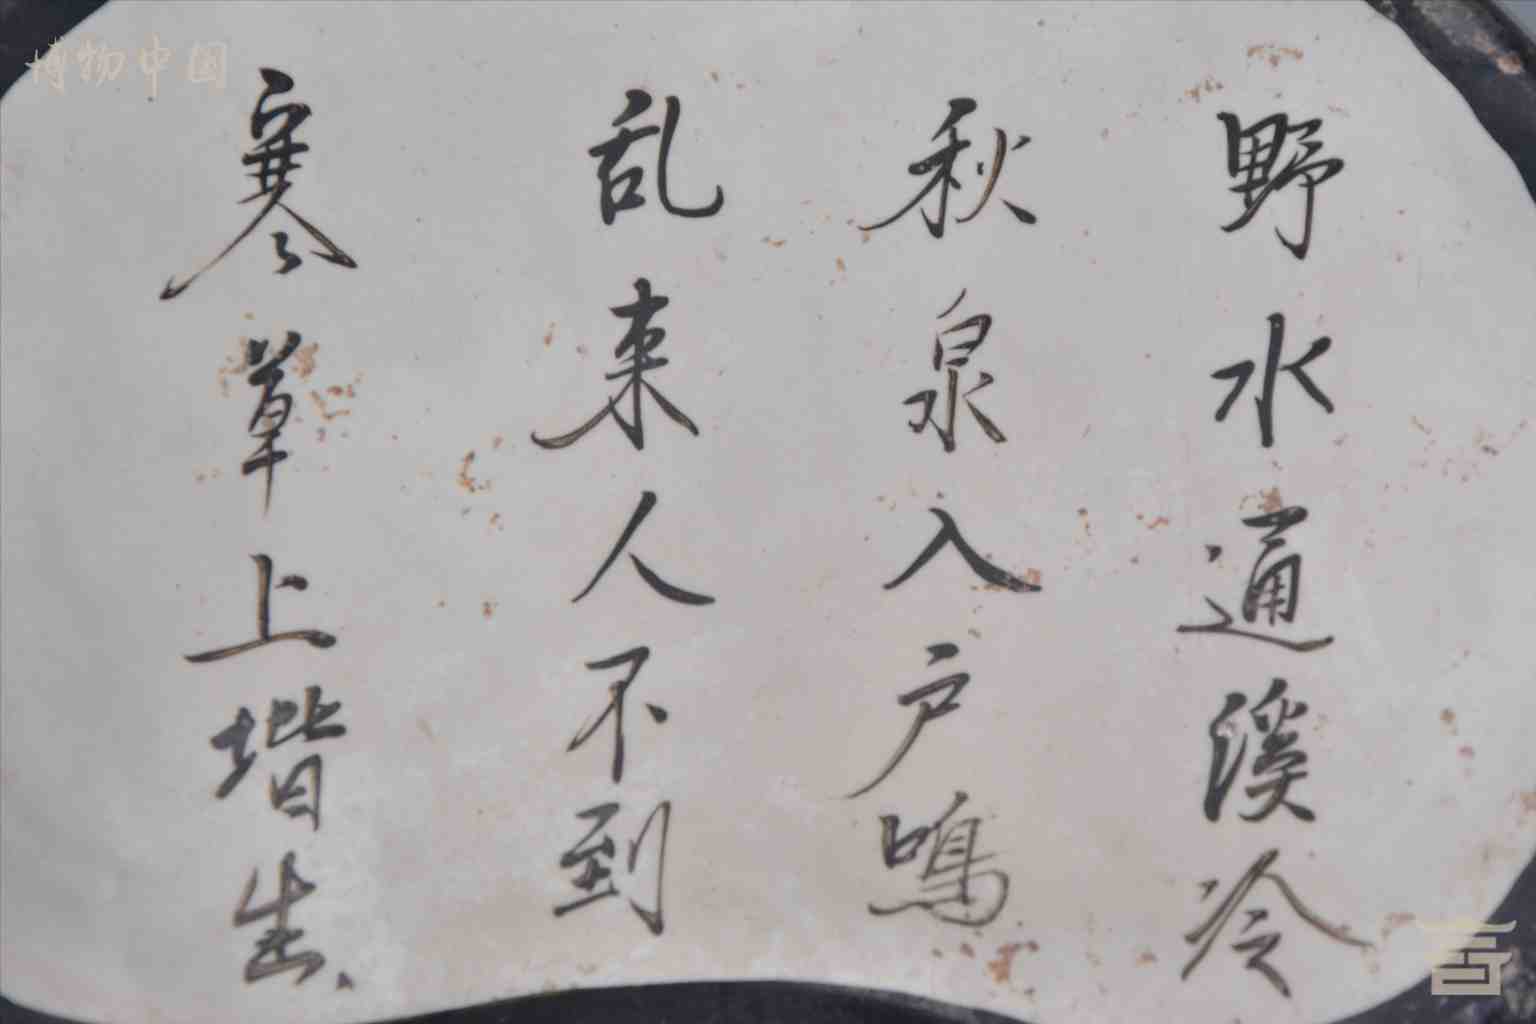 博物中国
野水通溪冷
秋泉入户鳴
乱来人不到
寒草上堦生